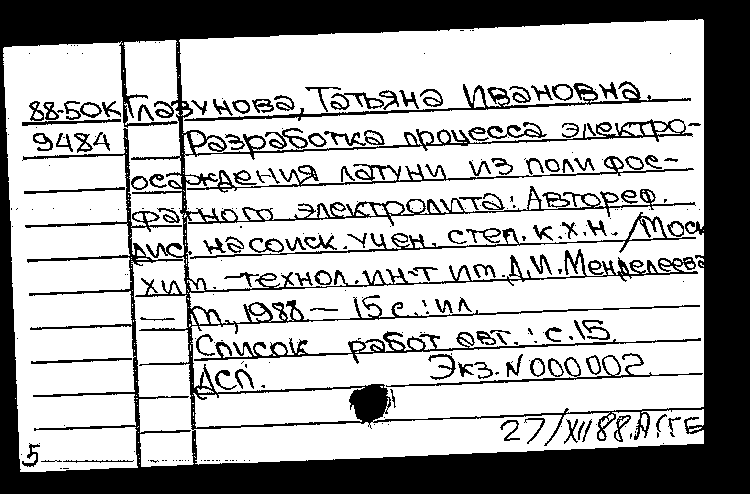 88-50К Глазунова, Татьяна Ивановна.
9484 Разработка процесса электро-
осаждения латуни из полифос-
фатного электролита: Автореф.
дис. на соиск. учен. степ. к.х.н. / Моск
хим.-технол. ин-т им. Д.И. Менделеева
— м., 1988 — 15 с.: ил.
Список работ авт.: с. 15.
ДСП. Экз. N 000002
27/XII 88.
5